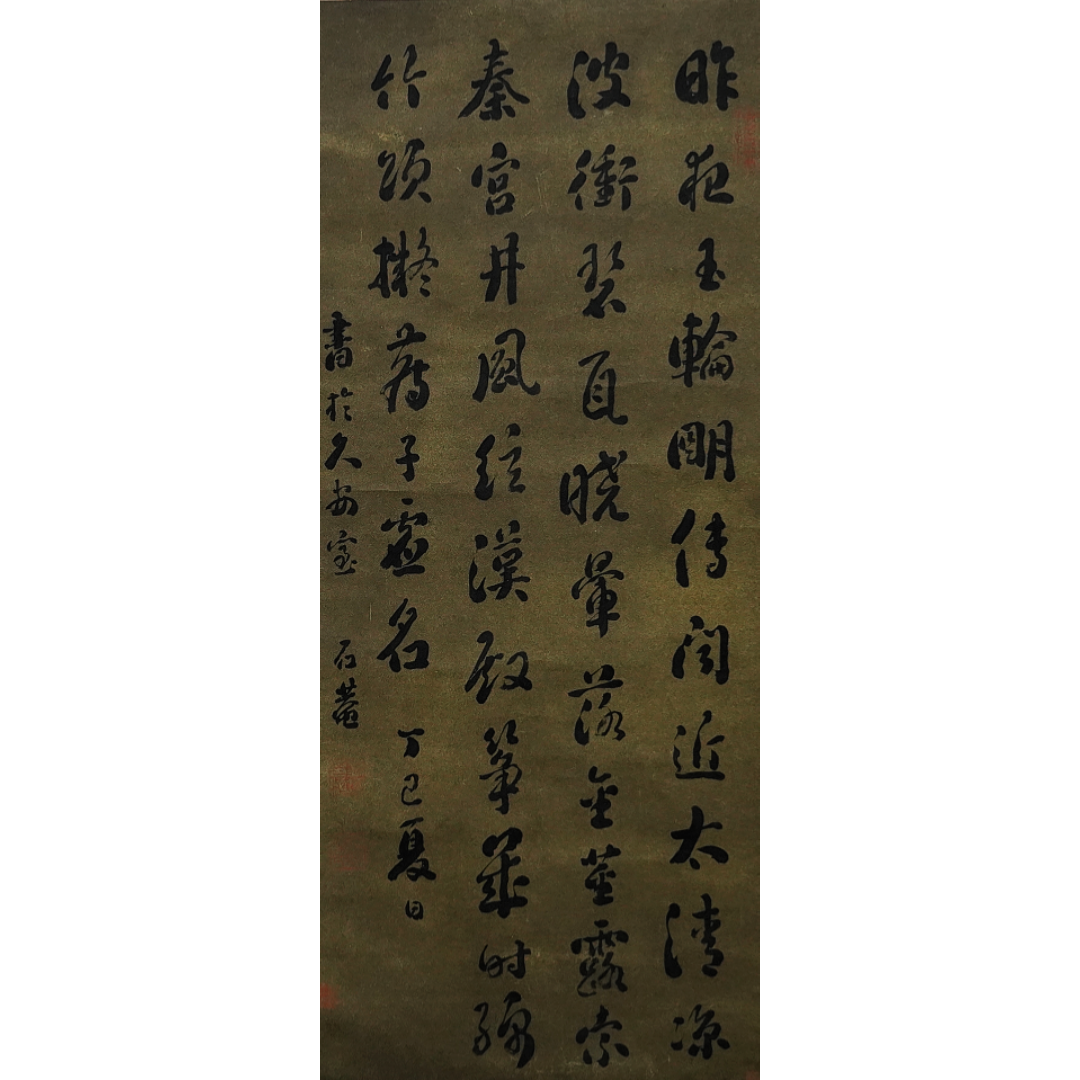 昨夜玉輪明傳聞近太清涼
波衝碧瓦曉暈落金莖露索
秦宮井風絃漢殿箏幾時綿
竹頌擬薦子虛名 丁巳夏日
書於久安室 石菴